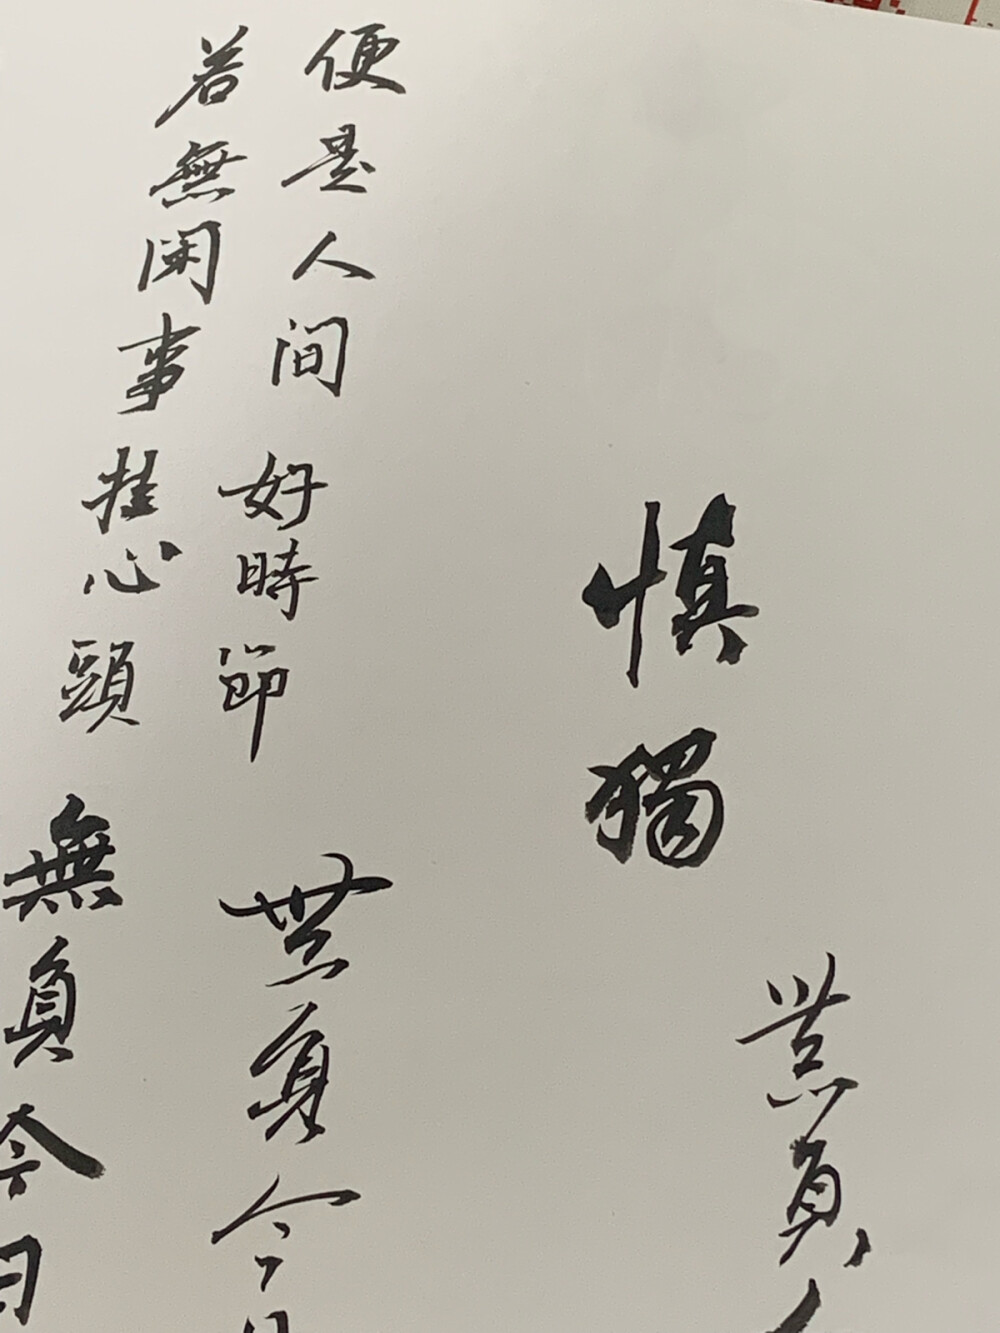 無負
慎獨
便是人间好時節
無負今
若無闲事挂心頭
無負今日